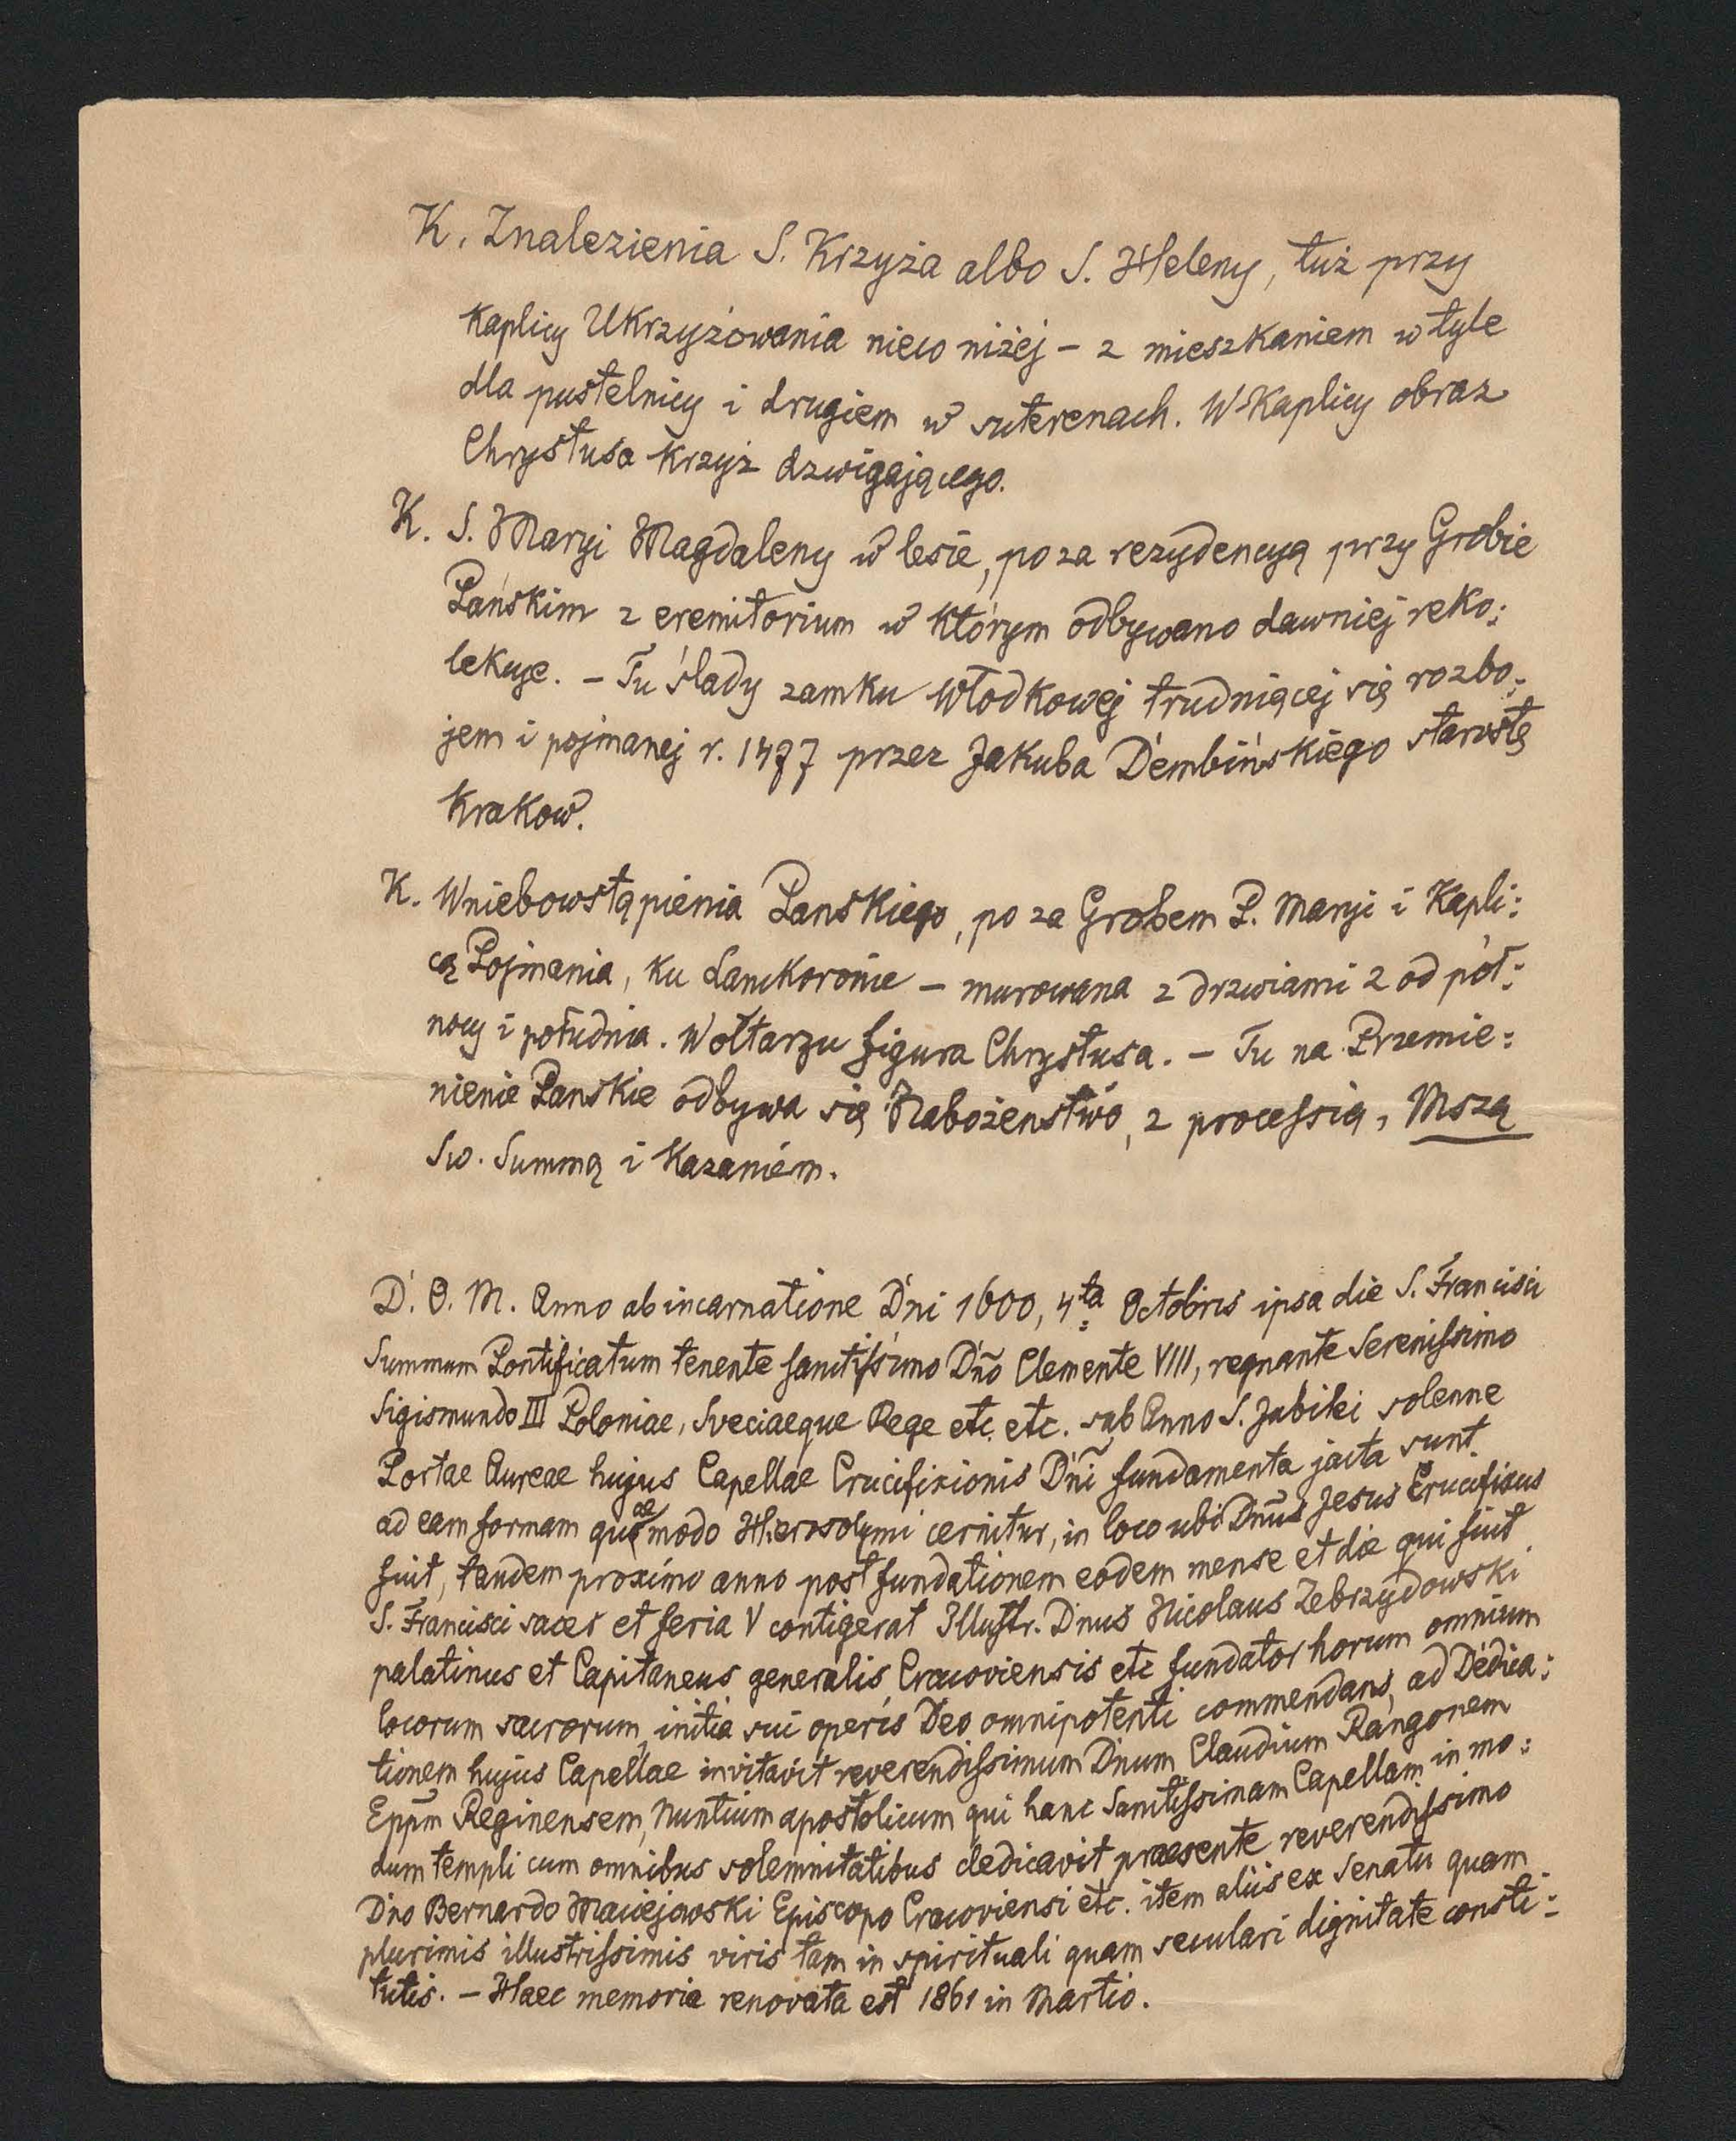 K. Znalezienia S. Krzyża albo S. Heleny, tuż przy
Kaplicy Ukrzyżowania nieco niżej – z mieszkaniem w tyle
dla pustelnicy i drugiem w suterenach. W Kaplicy obraz
Chrystusa Krzyż dzwigającego.
K. S. Maryi Magdaleny w lesie, poza rezydencyą przy Grobie
Pańskim z eremitorium w którym odbywano dawniej reko:
lekcye. – Tu ślady zamku Włodkowej trudniącej się rozbo:
jem i pojmanej r. 1477 przez Jakuba Dembińskiego starostę
Krakow.
K. Wniebowstąpienia Panskiego, poza Grobem P. Maryi i Kapli:
cą Pojmania, ku Lanckoronie – murowana z drzwiami 2 od pół:
nocy i południa. W ołtarzu figura Chrystusa. – Tu na Przemie:
nienie Panskie odbywa się Nabożenstwo, z processią, Mszą
Sw. Summą i Kazaniem.
D. O. M. Anno ab incarnatione Dni 1600, 4ta Octobris ipsa die S. Francisci
Summum Pontificatum tenente sanctissimo Dño Clemente VIII, regnante Serenissimo
Sigismundo III Poloniae, Sveciaeque Rege etc. etc. sub Anno S. Jubilei solenne
Portae Aureae hujus Capellae Crucifixionis Dñi fundamenta jacta sunt
ad eam formam quae modo Hierosolymi cernitur, in loco ubi Dnus Jesus Crucifixus
fuit, tandem proximo anno post fundationem eodem mense et die qui fuit
S. Francisci sacer et feria V contigerat Illustr. Dnus Nicolaus Zebrzydowski
palatinus et Capitaneus generalis Cracoviensis etc fundator horum omnium
locorum sacrorum, initia sui operis Deo omnipotenti commendans, ad Dedica:
tionem hujus Capellae invitavit reverendissimum Dnum Claudium Rangonem
Eppm Reginensem, Nuntium apostolicum qui hanc Sanctissimam Capellam in mo:
dum templi cum omnibus solemnitatibus dedicavit praesente reverendissimo
Dno Bernardo Maciejowski Episcopo Cracoviensi etc. item aliis ex Senatu quam
plurimis illustrissimis viris tam in spirituali quam seculari dignitate consti:
tutis. – Haec memoria renovata est 1861 in Martio.